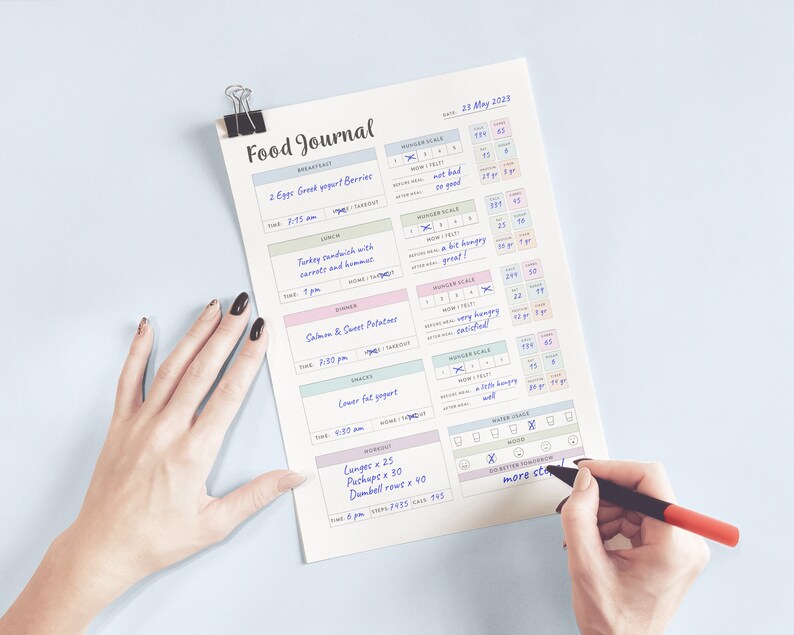 Food Journal
DATE: 23 May 2023
BREAKFAST
2 Eggs Greek yogurt Berries
TIME: 7:15 am HOME / TAKEOUT
HUNGER SCALE
1 2 3 4 5
HOW I FELT?
BEFORE MEAL: not bad
AFTER MEAL: so good
CALS CARBS
184 65
FAT SUGAR
15 6
PROTEIN FIBER
29 gr 3 gr
LUNCH
Turkey sandwich with
carrots and hummus.
TIME: 1 pm HOME / TAKEOUT
HUNGER SCALE
1 2 3 4 5
HOW I FELT?
BEFORE MEAL: a bit hungry
AFTER MEAL: great!
CALS CARBS
331 45
FAT SUGAR
25 16
PROTEIN FIBER
36 gr 1 gr
DINNER
Salmon & Sweet Potatoes
TIME: 7:30 pm HOME / TAKEOUT
HUNGER SCALE
1 2 3 4 5
HOW I FELT?
BEFORE MEAL: very hungry
AFTER MEAL: satisfied!
CALS CARBS
244 50
FAT SUGAR
22 19
PROTEIN FIBER
42 gr 3 gr
SNACKS
Lower fat yogurt
TIME: 4:30 am HOME / TAKEOUT
HUNGER SCALE
1 2 3 4 5
HOW I FELT?
BEFORE MEAL: a little hungry
AFTER MEAL: well
CALS CARBS
134 65
FAT SUGAR
15 6
PROTEIN FIBER
86 gr 14 gr
WORKOUT
Lunges x 25
Pushups x 30
Dumbell rows x 40
TIME: 6 pm STEPS: 7435 CALS: 145
WATER USAGE
MOOD
DO BETTER TOMORROW
more